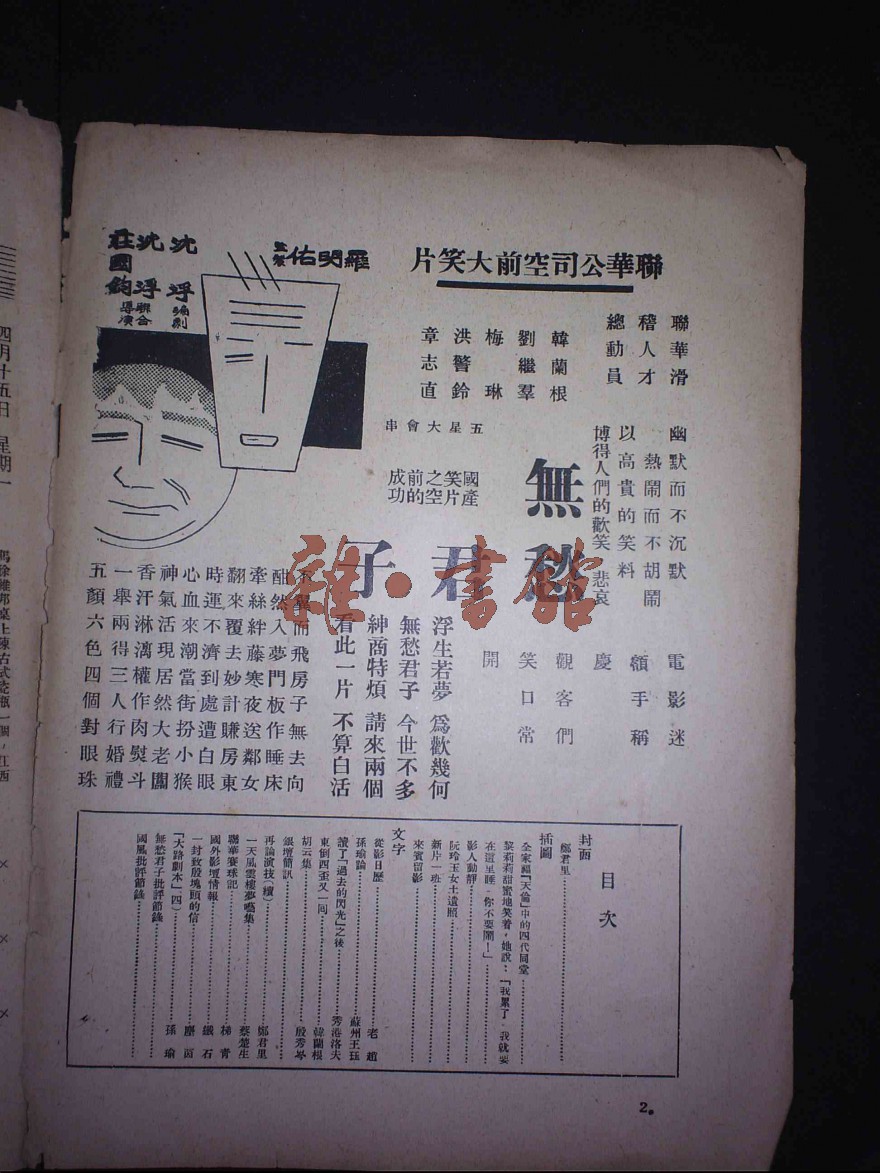 聯華公司空前大笑片
羅明佑
監製
沈浮
編劇
沈浮
莊國鈞
聯合
導演
聯華滑
稽人才
總動員
韓蘭根
劉繼羣
梅琳
洪警鈴
章志直
五星大會串
幽默而不沉默
熱鬧而不胡鬧
以高貴的笑料
博得人們的歡笑 悲哀
無愁
君
子
國產
笑片
之空
前的
成功
電影迷
額手稱
慶
觀客們
笑口常
開
浮生若夢 爲歡幾何
無愁君子 今世不多
紳商特煩 請來兩個
看此一片 不算白活
不翼而飛房子無去向
酣然入夢門板作睡床
牽絲絆藤寒夜送鄰女
翻來覆去妙計賺房東
時運不濟到處遭白眼
心血來潮當街扮小猴
神氣活現居然大老闆
香汗淋漓權作肉熨斗
一舉兩得三人行婚禮
五顏六色四個對眼珠
目次
封面
鄭君里
插圖
全家福『天倫』中的四代同堂
黎莉莉甜蜜地笑着,她說:『我累了,我就要
在這里睡,你不要鬧!』
影人動靜
阮玲玉女士遺照
新片一班
來賓留影
文字
從影日歷 老趙
孫瑜論 蘇州王珏
讀了『過去的閃光』之後 秀港洛夫
東倒西歪又一回 韓蘭根
胡云集 殷秀岑
銀壇簡訊
再論演技(續) 鄭君里
一天風雲樓夢囈集 蔡楚生
聯華賽球記 梯青
國外影壇情報 鐵石
一封致殷塊頭的信 塵茵
『大路劇本』(四) 孫瑜
無愁君子批評節錄
國風批評節錄
2。
雜·書館
四月十五日 星期一